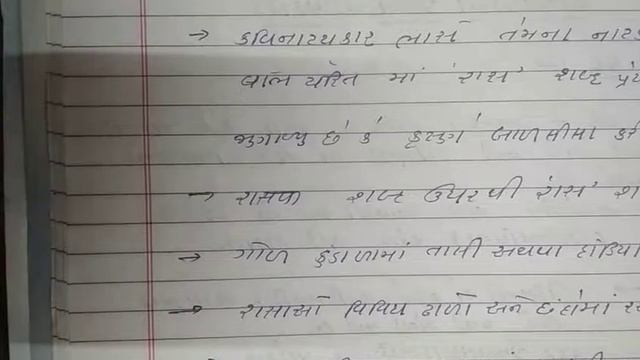 → કવિનાટ્યકાર ભાસે તેમના નાટ
બાલ ચરિત માં 'રાસ' શબ્દ
જણાવ્યુ છે કે
→ રાસક શબ્દ ઉપરથી 'રાસ' શ
→ ગોળ કુંડાળામાં તાલી અથવા દાંડિયા
→ રાસાઓ વિવિધ ઢાળો અને છંદોમાં